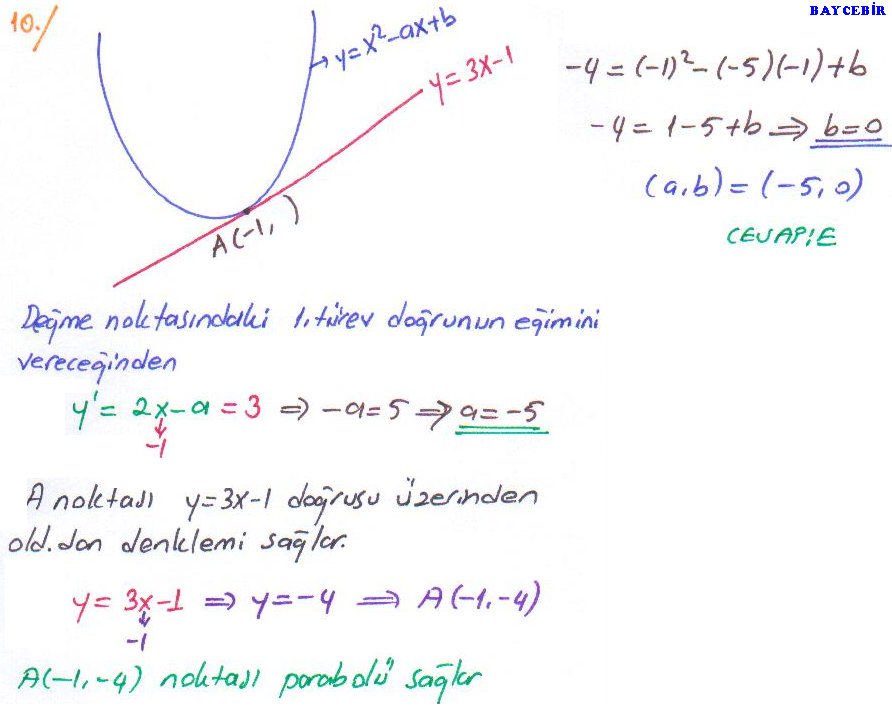 BAYCEBİR
10./
y=x²-ax+b
y=3x-1
A(-1, )
Değme noktasındaki 1. türev doğrunun eğimini
vereceğinden
y'= 2x-a = 3 ⇒ -a=5 ⇒ a=-5
-1
A noktası y=3x-1 doğrusu üzerinden
old.dan denklemi sağlar.
y= 3x-1 ⇒ y=-4 ⇒ A(-1,-4)
-1
A(-1,-4) noktası parabolü sağlar
-4 = (-1)²-(-5)(-1)+b
-4 = 1-5+b ⇒ b=0
(a,b) = (-5, 0)
CEVAP:E